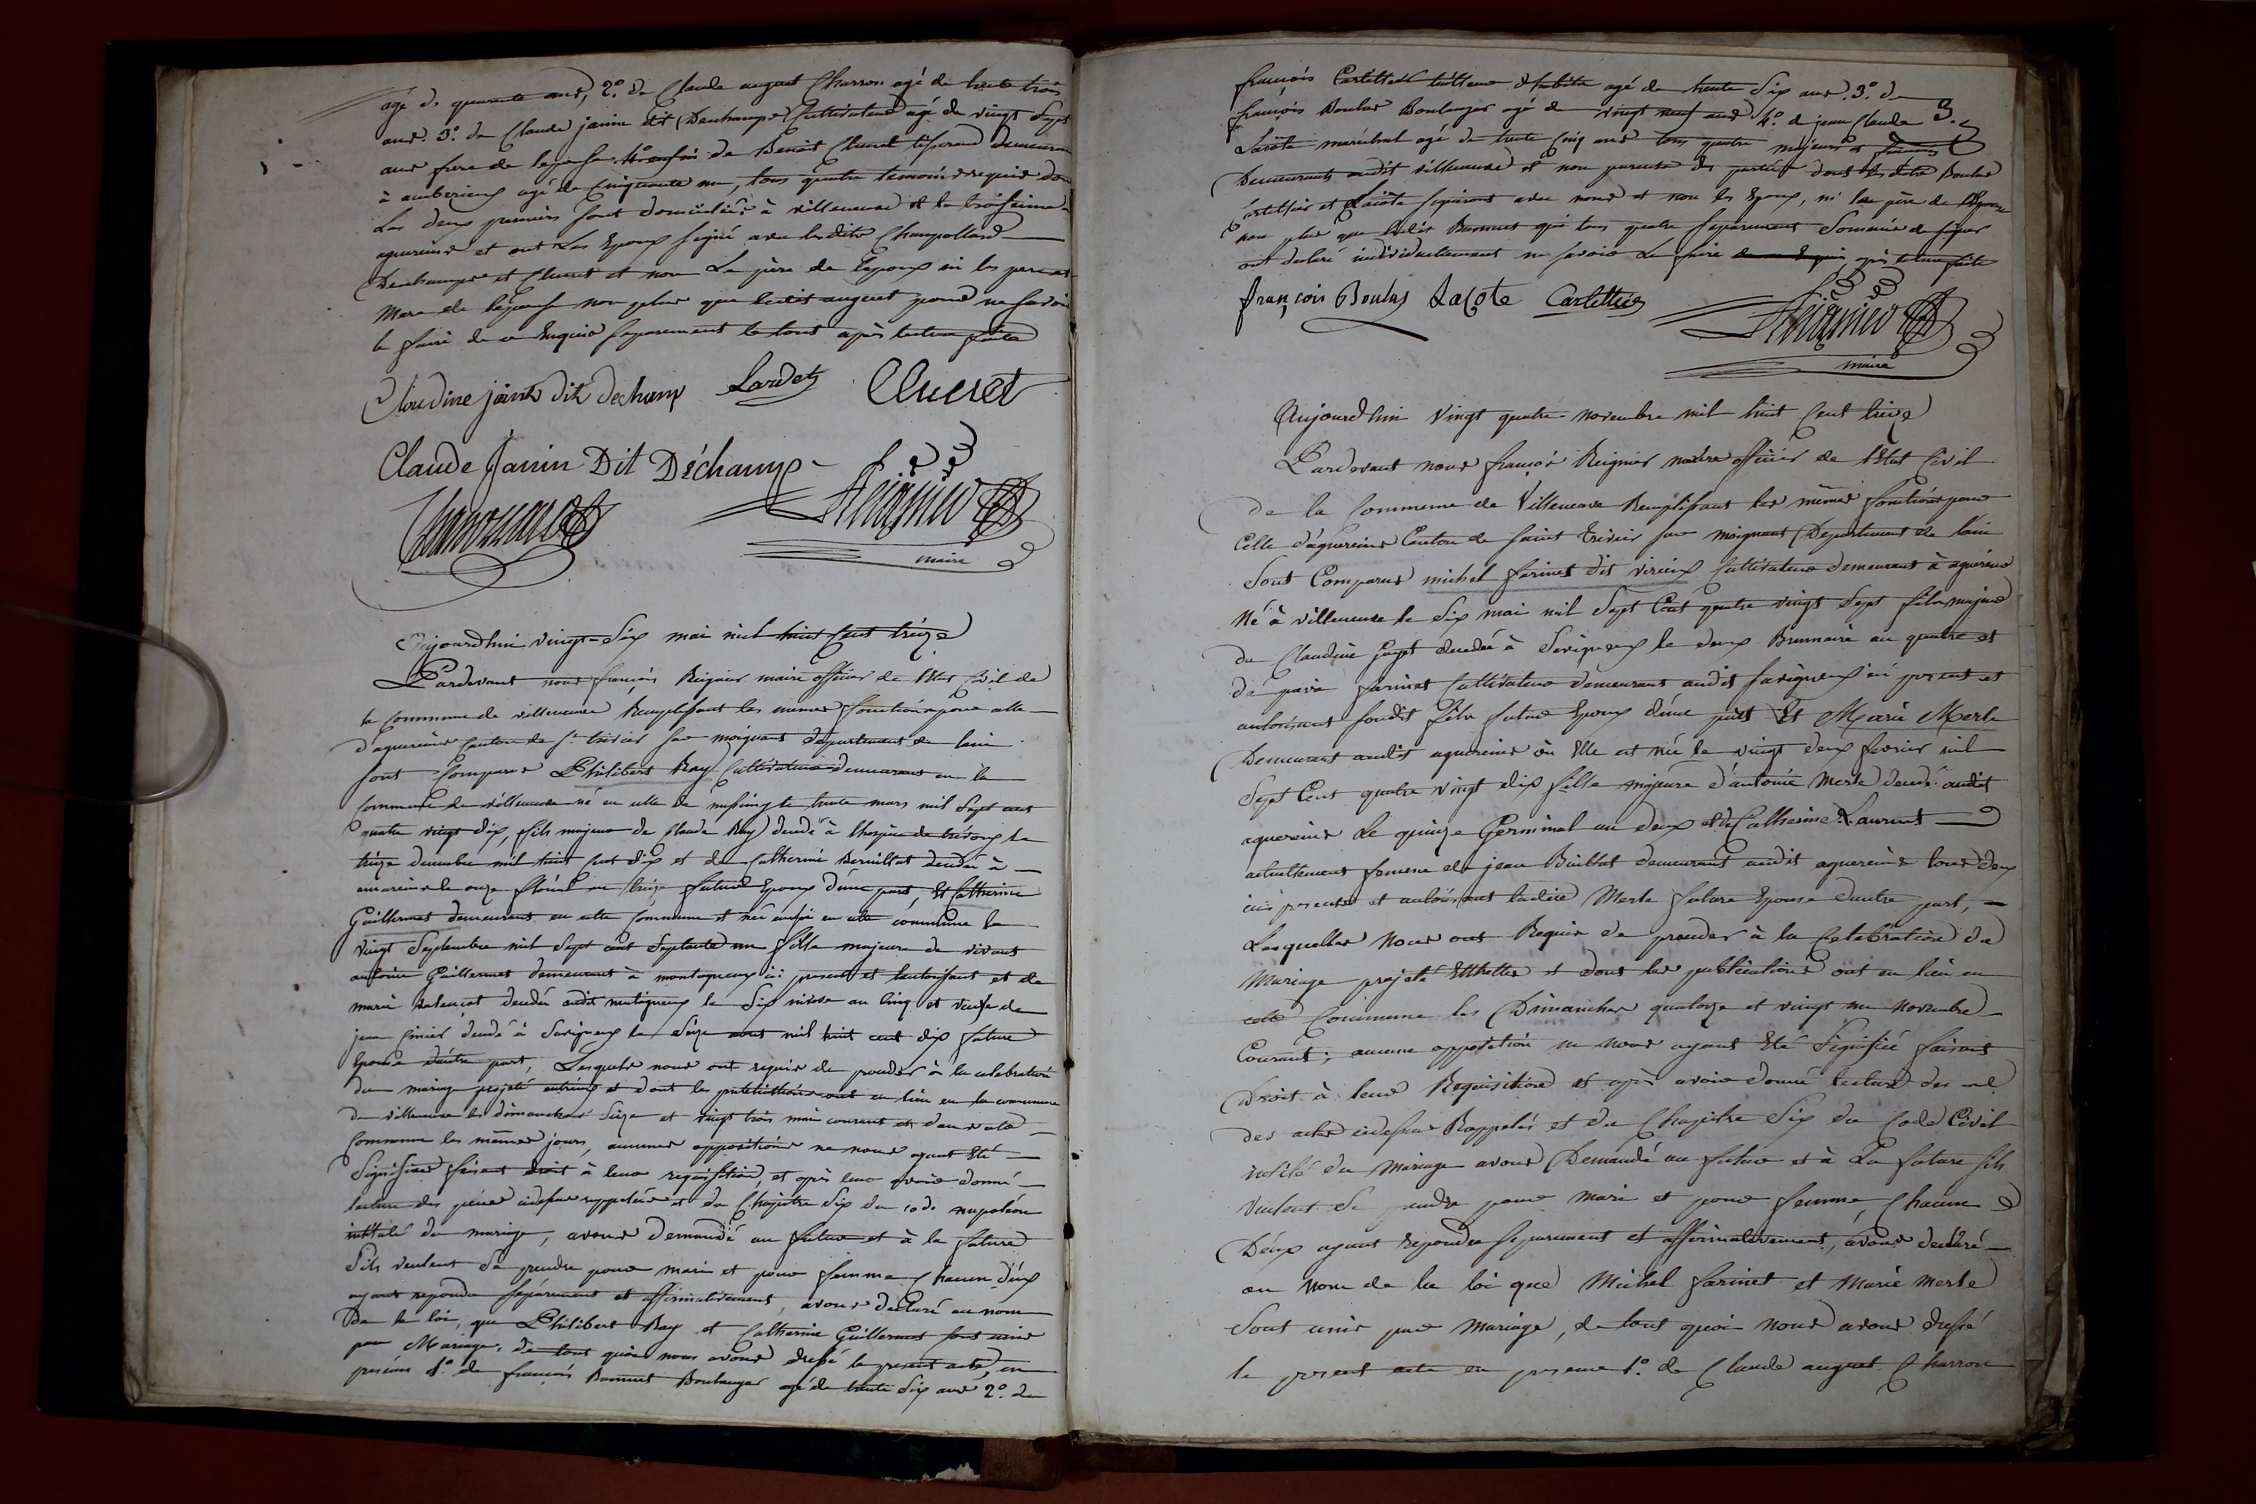 agé de quarante ans, 2.° de Claude auguet Charron agé de trente trois
ans 3.° de Claude janin dit Deschamps Cultivateur agé de vingt Sept
ans frere de lepouse 4.° enfin de Benoit Cluret tisserand Demeurant
à amberieux agé de Cinquante un, tous quatre temoins requis dont
Les deux premiers sont domiciliés à villeneuve et le troisieme à
aguereins et ont Les Epoux signé avec lesdits Champollard
Deschamps et Cluret et non Le père de lepoux ni les pere et
Mere de lepouse non plus que ledit auguet pour ne savoir
le faire de ce Enquis separement le tout après lecture faite
Claudine janin dit dechamp Lardet Clueret
Claude Janin Dit Déchamp
Reignier
maire
Aujourdhui vingt-Six mai mil huit Cent treize
Pardevant nous françois Reignier maire officier de l'Etat Civil de
la Commune de villeneuve Remplissant les memes fonctions pour celle
d'aguereins Canton de St trivier sur moignans département de lain
sont Comparus Philibert Ray Cultivateur demeurant en la
Commune de villeneuve né en celle de le trente mars mil Sept cent
quatre vingt dix, fils majeur de Claude Ray decedé à lhospice de trévoux le
treize decembre mil huit Cent dix et de Catherine decedée à
le onze floréal an treize futur Epoux d'une part, Et Catherine
Guillermet demeurant en cette Commune et née aussi en cette commune le
vingt Septembre mil Sept cent Septante un fille majeure de vivant
antoine Guillermet demeurant à montagneux ici present et lautorisant et de
marie decedée audit montagneux le Six nivose an Cinq et veuve de
jean decedé à Savigneux le Seize aout mil huit cent dix future
Epouse d'autre part, Lesquels nous ont requis de proceder à la celebration
du mariage projeté entreux et dont les publications ont eu lieu en la commune
de villeneuve les dimanches Seize et vingt trois mai courant et dans cette
Commune les mêmes jours, aucunes oppositions ne nous ayant Eté
Signifiées faisant droit à leur requisition, et après leur avoir donné
lecture des pieces cidessus rappelées et du Chapitre Six du code napoléon
intitulé du mariage, avons demandé au futur et à la future
S'ils veulent Se prendre pour mari et pour femme Chacun d'eux
ayant repondu séparement et affirmativement, avons declaré au nom
De la loi, que Philibert Ray et Catherine Guillermet sont unis
par Mariage. de tout quoi nous avons dressé le present acte, en
presence 1.° de françois Bonnet Boulanger agé de trente Six ans 2.° de
françois Cartellier agé de trente Six ans. 3.° de
françois Boulas Boulanger agé de vingt neuf ans 4.° de jean Claude
Lacote maréchal agé de trente Cinq ans tous quatre majeurs et
Demeurants audit villeneuve et non parents des parties dont lesdits Boulas
Cartellier et Lacote signeront avec nous et non les Epoux, ni le père de l'Epouse
non plus que ledit Bonnet qui tous quatre separement Sommés de signer
ont declaré individuellement ne savoir Le faire après lecture faite
françois Boulas Lacote Cartellier
Reignier
maire
Aujourdhui Vingt quatre novembre mil huit Cent treize
Pardevant nous françois Reignier maire officier de l'Etat Civil
de la Commune de Villeneuve Remplissant les mêmes fonctions pour
Celle d'aguereins Canton de Saint trivier sur moignans Departement de lain
Sont Comparus michel farinet dit virieux Cultivateur demeurant à aguereins
Né à villeneuve le Six mai mil Sept Cent quatre vingt Sept fils majeur
de Claudine decedée à Savigneux le deux Brumaire an quatre et
de farinet Cultivateur demeurant audit Savigneux ici present et
autorisant sondit fils futur Epoux d'une part Et Marie Merle
Demeurant audit aguereins où Elle est née le vingt deux fevrier mil
Sept Cent quatre vingt dix fille majeure d'antoine Merle decedé audit
aguereins Le quinze Germinal an deux et de Catherine Laurent
actuellement femme de jean demeurant audit aguereins tous deux
ici presents et autorisant ladite Merle future Epouse dautre part,
Lesquelles Nous ont Requis de proceder à la Celebration du
Mariage projeté et dont les publications ont eu lieu en
cette Commune les Dimanches quatorze et vingt un Novembre
Courant; aucune opposition ne Nous ayant Eté Signifiée faisant
Droit à leur Requisition et après avoir donné lecture des
des actes cidessus Rappelés et du Chapitre Six du Code Civil
intitulé du Mariage avons Demandé au futur et à La future s'ils
Veulent Se prendre pour mari et pour femme, Chacun
Deux ayant repondu separement et affirmativement, avons declaré
au Nom de la loi que Michel farinet et Marie Merle
Sont unis par Mariage, de tout quoi Nous avons dressé
le present acte en presence 1.° de Claude auguet Charron